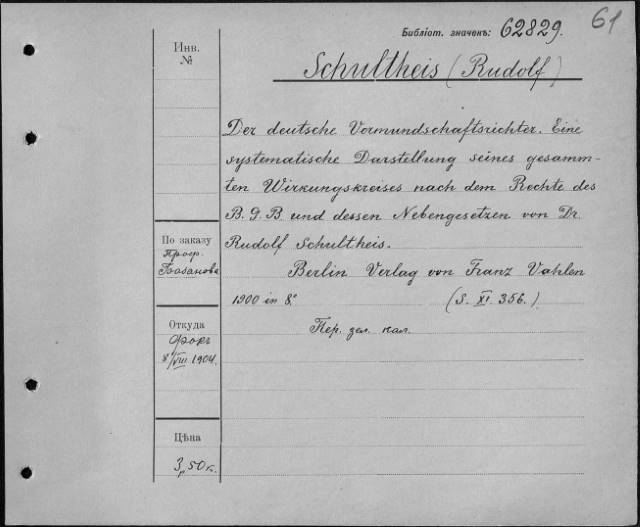 61
Библіот. значекъ: 62829.
Инв.
№
Schultheis (Rudolf)
Der deutsche Vormundschaftsrichter. Eine
systematische Darstellung seines gesamm-
ten Wirkungskreises nach dem Rechte des
B.G.B. und dessen Nebengesetzen von Dr.
Rudolf Schultheis.
Berlin Verlag von Franz Vahlen
1900 in 8°
(S. XI. 356.)
Пер. зел. кал.
По заказу
Проф.
Базанова
Откуда
Фокъ
8/VIII 1904.
Цѣна
3р,50к.